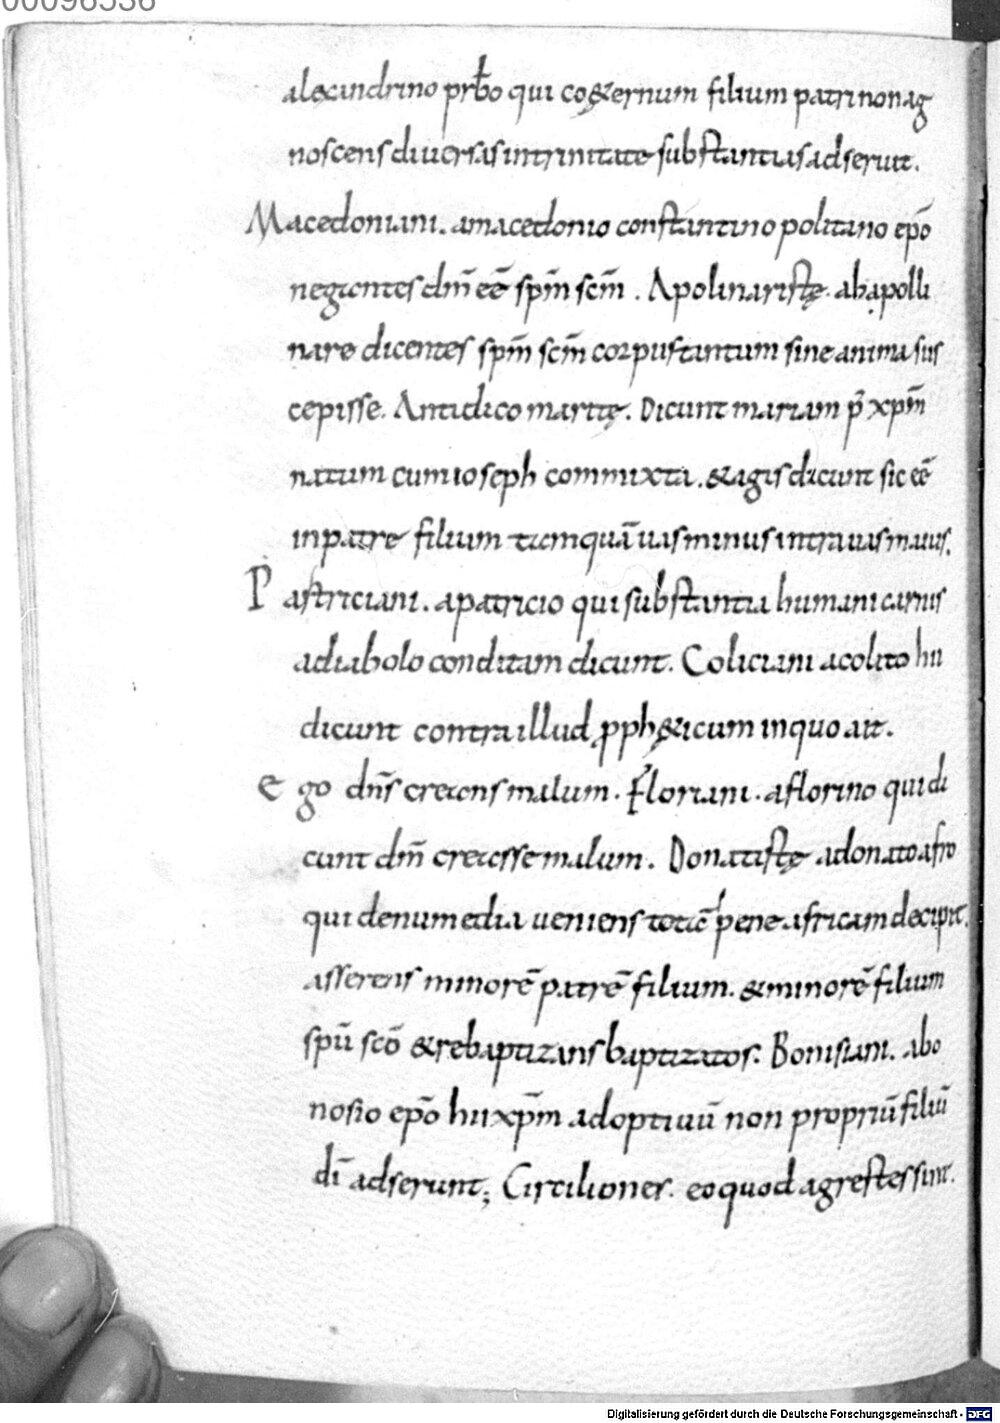 00096536
alexandrino prb̄o qui co&ernum filium patri non ag
noscens diuersas in trinitate substantias adserunt.
Macedoniani. a macedonio constantinopolitano ep̄o
negantes dm̄ eē spm̄ scm̄. Apolinaristę. ab apolli
nare dicentes spm̄ scm̄ corpus tantum sine anima sus
cepisse. Antidicomartę. Dicunt mariam p̄ xpm̄
natum cum ioseph commixta. & agis dicunt sic eē
in patre filium tamquā uas minus intra uas maius.
Pastriciani. a patricio qui substantia humani carnis
a diabolo conditam dicunt. Coliciani a colito hii
dicunt contra illud pph&icum in quo ait.
Ego dn̄s creans malum. Floriani. a florino qui di
cunt dm̄ creasse malum. Donatistę a donato afro
qui de numedia ueniens totā pene africam decipit.
asserens minorē patrē filium. & minorē filium
spū scō & rebaptizans baptizatos. Bonisiani. a bo
nosio ep̄o hii xpm̄ adoptiuū non propriū filiū
dī adserunt; Circiliones. eo quod agrestes sint.
Digitalisierung gefördert durch die Deutsche Forschungsgemeinschaft - DFG